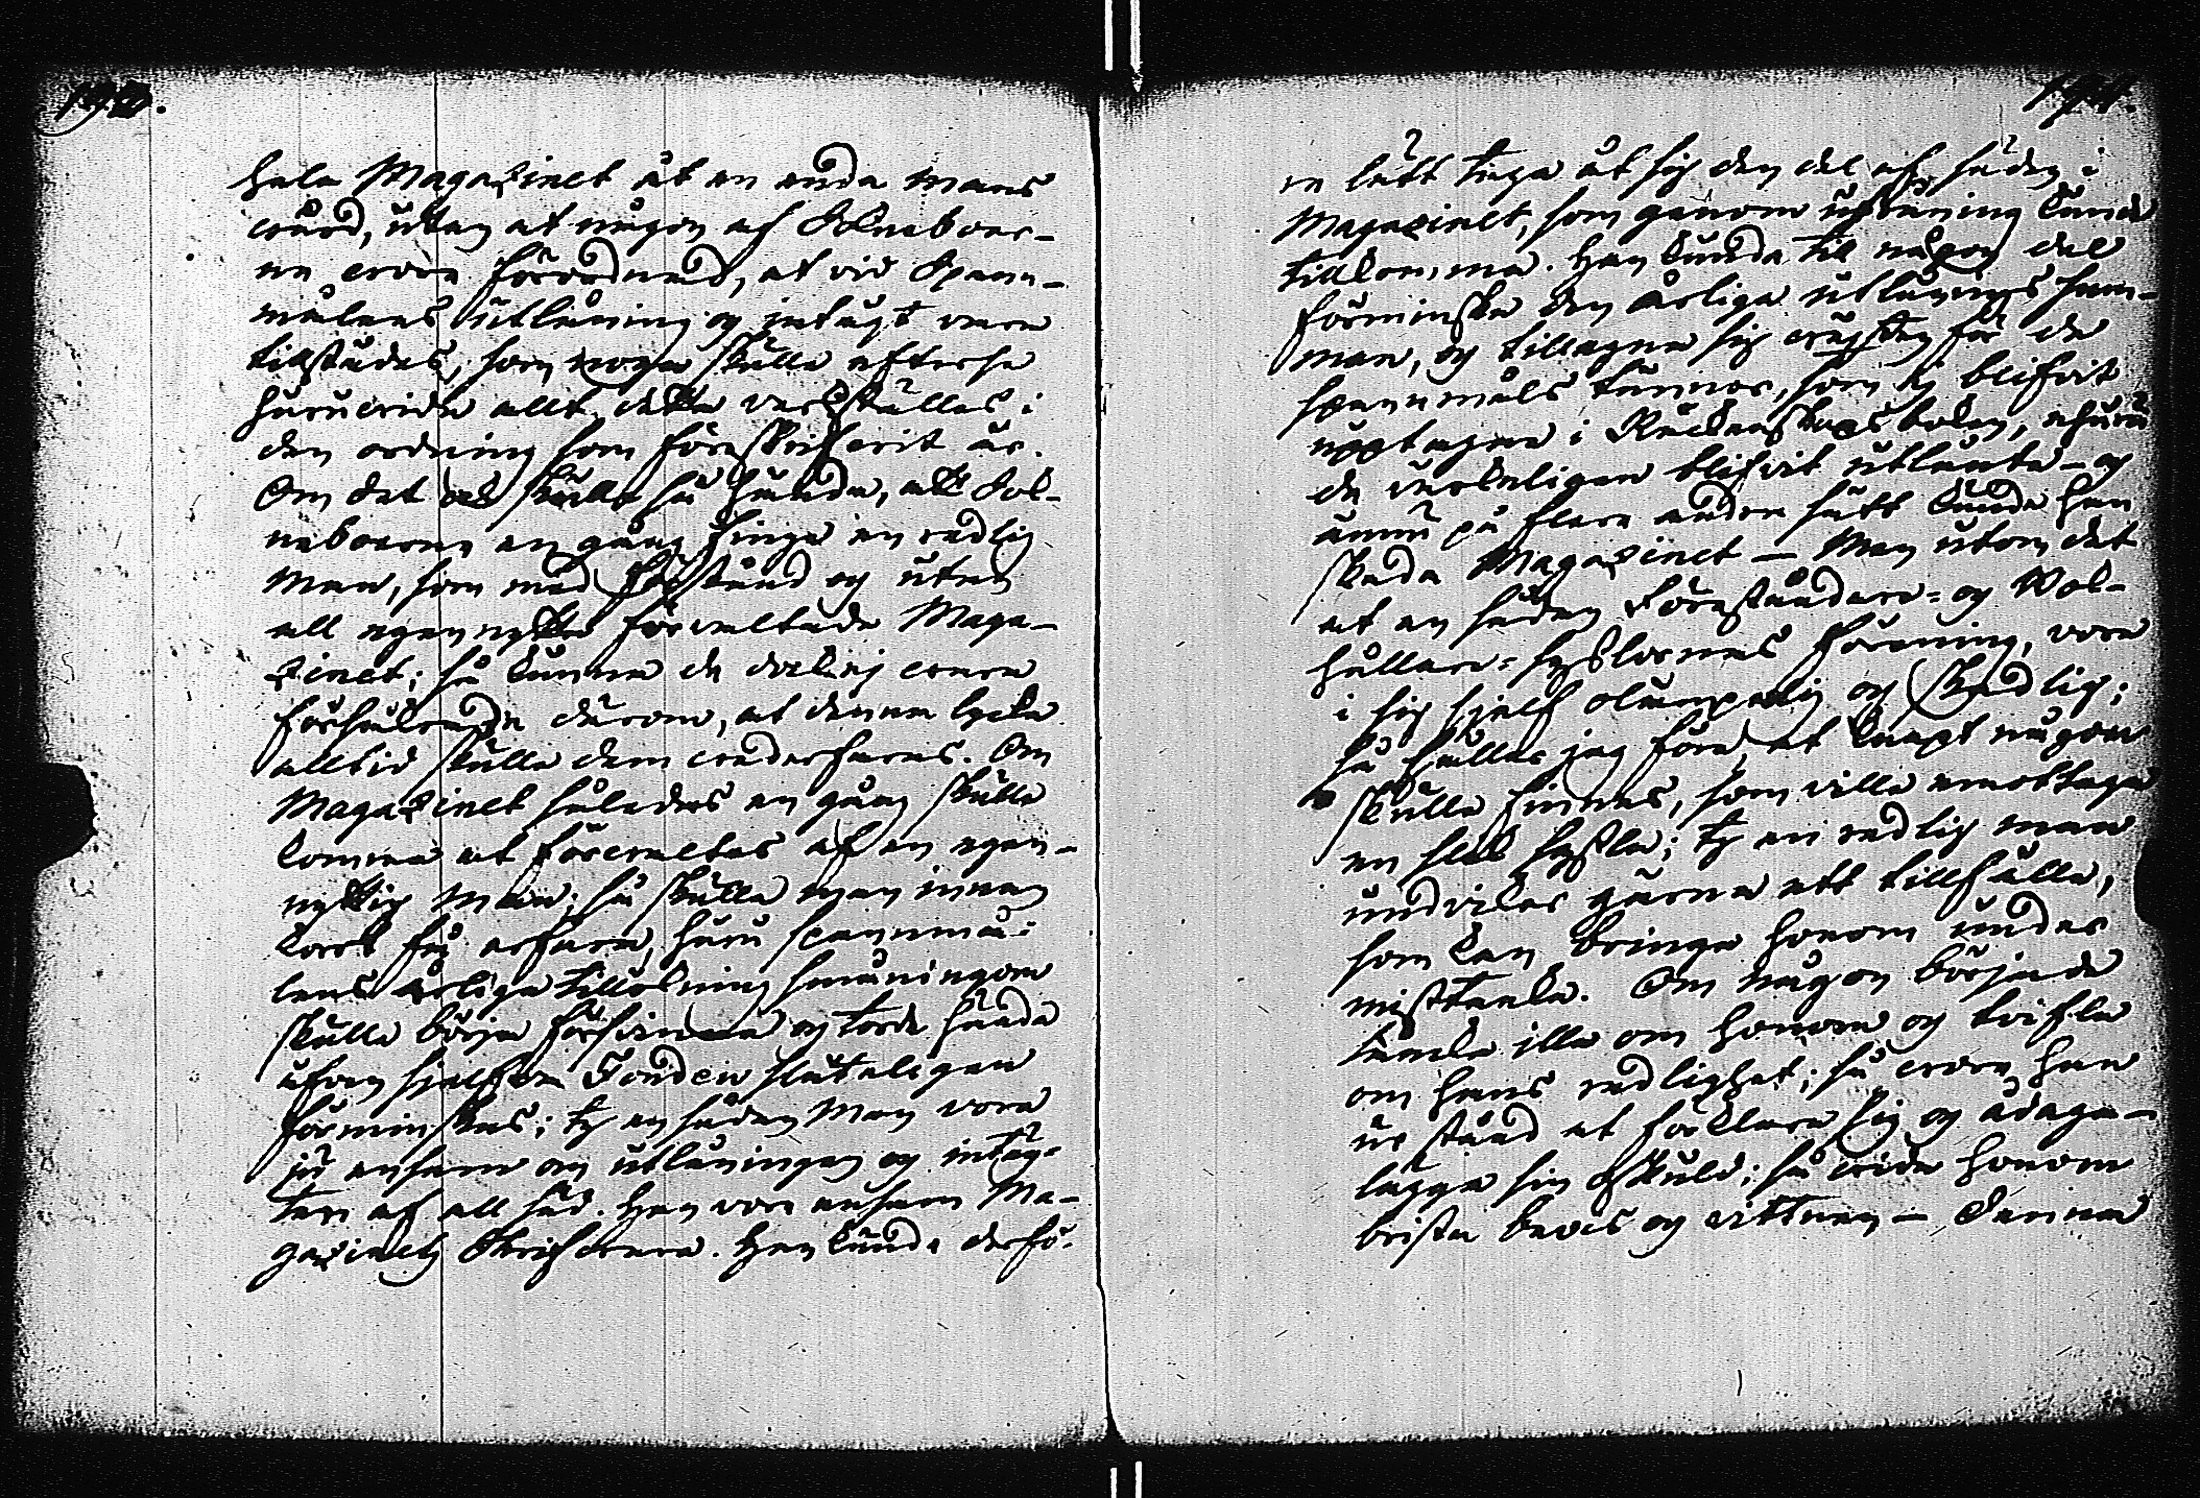 hela Magazinet åt en enda mans
vård, utan at någon af Sokneboer-
ne vore förordnad, at vid Spann-
målens utlåning og intägt vara
tillstädes, som noga skulle efterse
huruvida allt detta verkställes i
den ordning som föreskrifvit är.
Om det väl skulle så hända, att Sok-
neboerne en gång finge en redlig
Man, som med förstånd og utan
all egennytta förvaltade Maga-
zinet; så kunna de dock ej vara
försäkrade därom, at denna lycka
alltid skulle dem vederfaras. Om
Magazinet således en gång skulle
komma at förvaltas af en egen-
nyttig Man; så skulle man innan
kort få erfara, huru spannmå-
lens årliga tillökning småningom
skulle börja försvinna og torde hända
äfven sjelfva Fonden sluteligen
förminskas; ty en sådan Man vore
ju ensam om utlåningen og intäg-
ten af all säd. Han vore ensam Ma-
gazinets Skrifvare. Han kunde derfö-
re lätt tega åt sig den del af säden i
Magazinet, som genom utlåning kunde
tillkomma. Han kunde til någon del
förminska den årliga utlånings sum-
man, og tillegna sig växten för de
spannmåls tunnor, som ej blifvit
upptagne i Räkenskapsboken, ehuru
de verkeligen blifvit utlånta - og
ännu på flera andra sätt kunde han
skada Magazinet - Men utom det
at en sådan Föreståndare- og Bok-
hållare-sysslornas förening, vore
i sig sjelf olämpelig og skadlig;
så håller jag före, at knapt någon
skulle finnas, som ville emottaga
en slik syssla; ty en redlig man
undviker gärna ett tillfälle,
som kan bringa honom under
misstanka. Om någon började
tänka illa om honom og tvifla
om hans redlighet; så vore han
ur stånd at förklara sig og ådaga-
lägga sin oskuld; så vida honom
brista bevis og vittnen - Denna